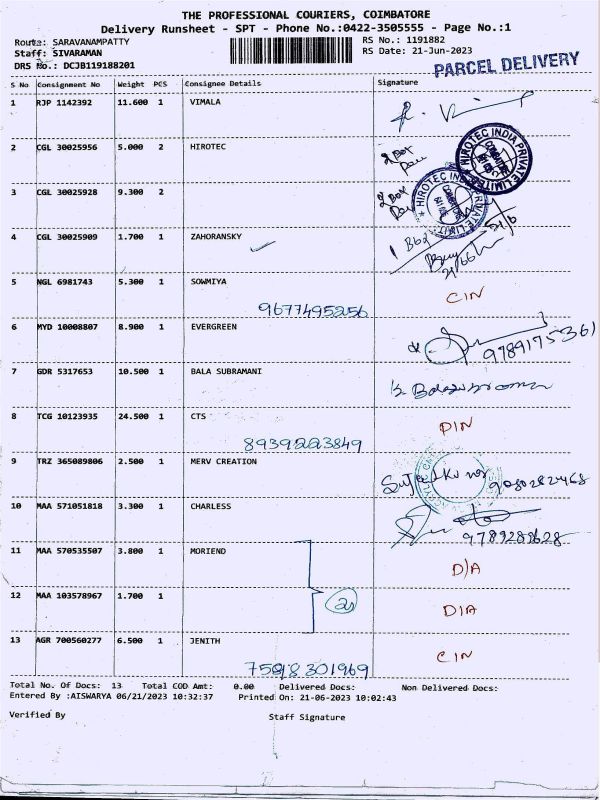 THE PROFESSIONAL COURIERS, COIMBATORE
Delivery Runsheet - SPT - Phone No.:0422-3505555 - Page No.:1
Route: SARAVANAMPATTY RS No.: 1191882
Staff: SIVARAMAN RS Date: 21-Jun-2023
DRS No.: DCJB119188201 PARCEL DELIVERY
S No Consignment No Weight PCS Consignee Details Signature
1 RJP 1142392 11.600 1 VIMALA
2 CGL 30025956 5.000 2 HIROTEC
HIROTEC INDIA PRIVATE LIMITED
3 CGL 30025928 9.300 2
2 Box
4 CGL 30025909 1.700 1 ZAHORANSKY
5 NGL 6981743 5.300 1 SOWMIYA CIN
9677495256
6 MYD 10008807 8.900 1 EVERGREEN
9789175361
7 GDR 5317653 10.500 1 BALA SUBRAMANI
8 TCG 10123935 24.500 1 CTS DIN
8939223849
9 TRZ 365089806 2.500 1 MERV CREATION
10 MAA 571051818 3.300 1 CHARLESS
9789289628
11 MAA 570535507 3.800 1 MORIEND D/A
12 MAA 103578967 1.700 1 D/A
13 AGR 700560277 6.500 1 JENITH CIN
7598301969
Total No. Of Docs: 13 Total COD Amt: 0.00 Delivered Docs: Non Delivered Docs:
Entered By :AISWARYA 06/21/2023 10:32:37 Printed On: 21-06-2023 10:02:43
Verified By Staff Signature